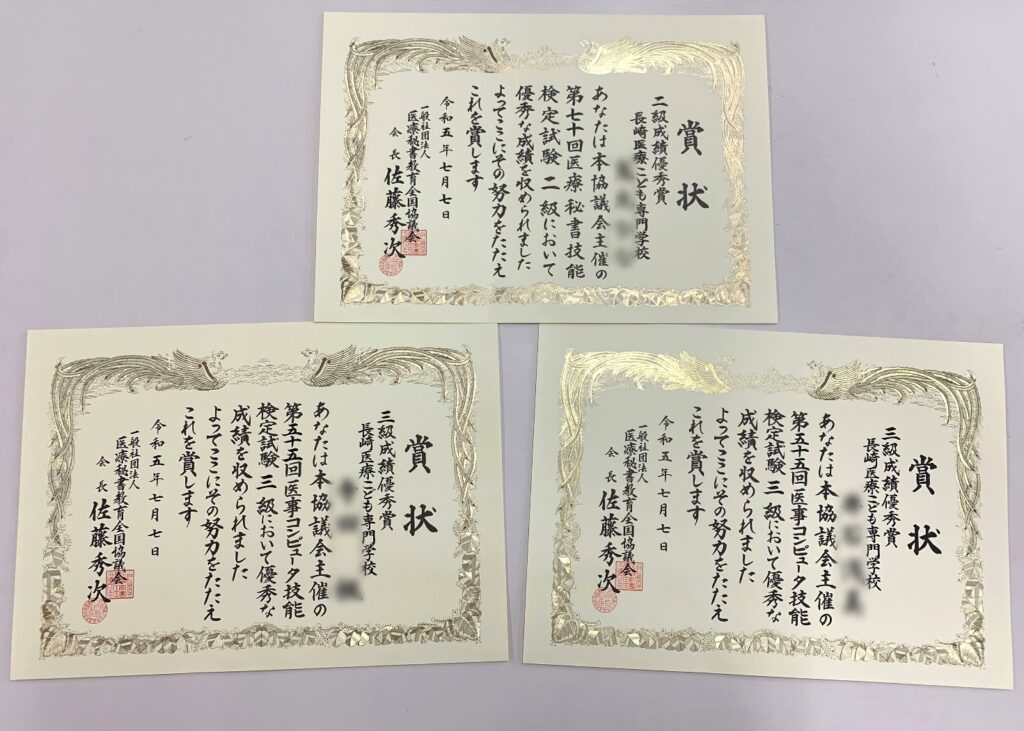 賞状
二級成績優秀賞
長崎医療こども専門学校
あなたは本協議会主催の
第七十回医療秘書技能
検定試験二級において
優秀な成績を収められました
よってここにその努力をたたえ
これを賞します
令和五年七月七日
一般社団法人
医療秘書教育全国協議会
会長 佐藤秀次
賞状
三級成績優秀賞
長崎医療こども専門学校
あなたは本協議会主催の
第五十五回医事コンピュータ技能
検定試験三級において優秀な
成績を収められました
よってここにその努力をたたえ
これを賞します
令和五年七月七日
一般社団法人
医療秘書教育全国協議会
会長 佐藤秀次
賞状
三級成績優秀賞
長崎医療こども専門学校
あなたは本協議会主催の
第五十五回医事コンピュータ技能
検定試験三級において優秀な
成績を収められました
よってここにその努力をたたえ
これを賞します
令和五年七月七日
一般社団法人
医療秘書教育全国協議会
会長 佐藤秀次